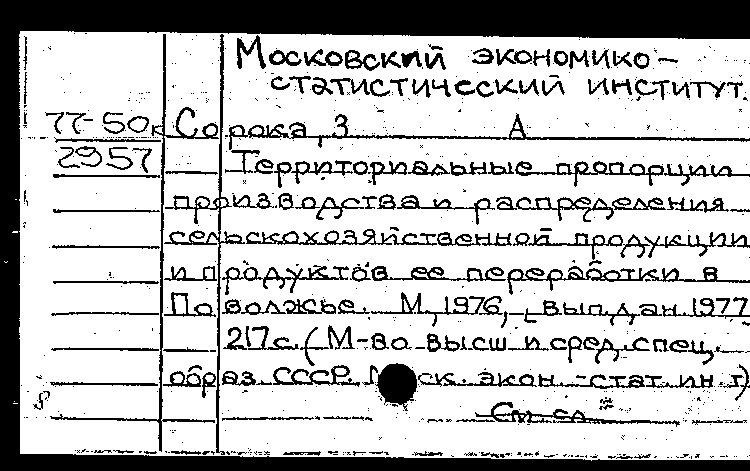 Московский экономико-
статистический институт.
77-50к Сорока, З А
2957 Территориальные пропорции
производства и распределения
сельскохозяйственной продукции
и продуктов ее переработки в
Поволжье. М., 1976, вып. дан. 1977
217 с. (М-во высш и сред. спец.
образ. СССР. Моск. экон.-стат. ин-т)
8 См. сл